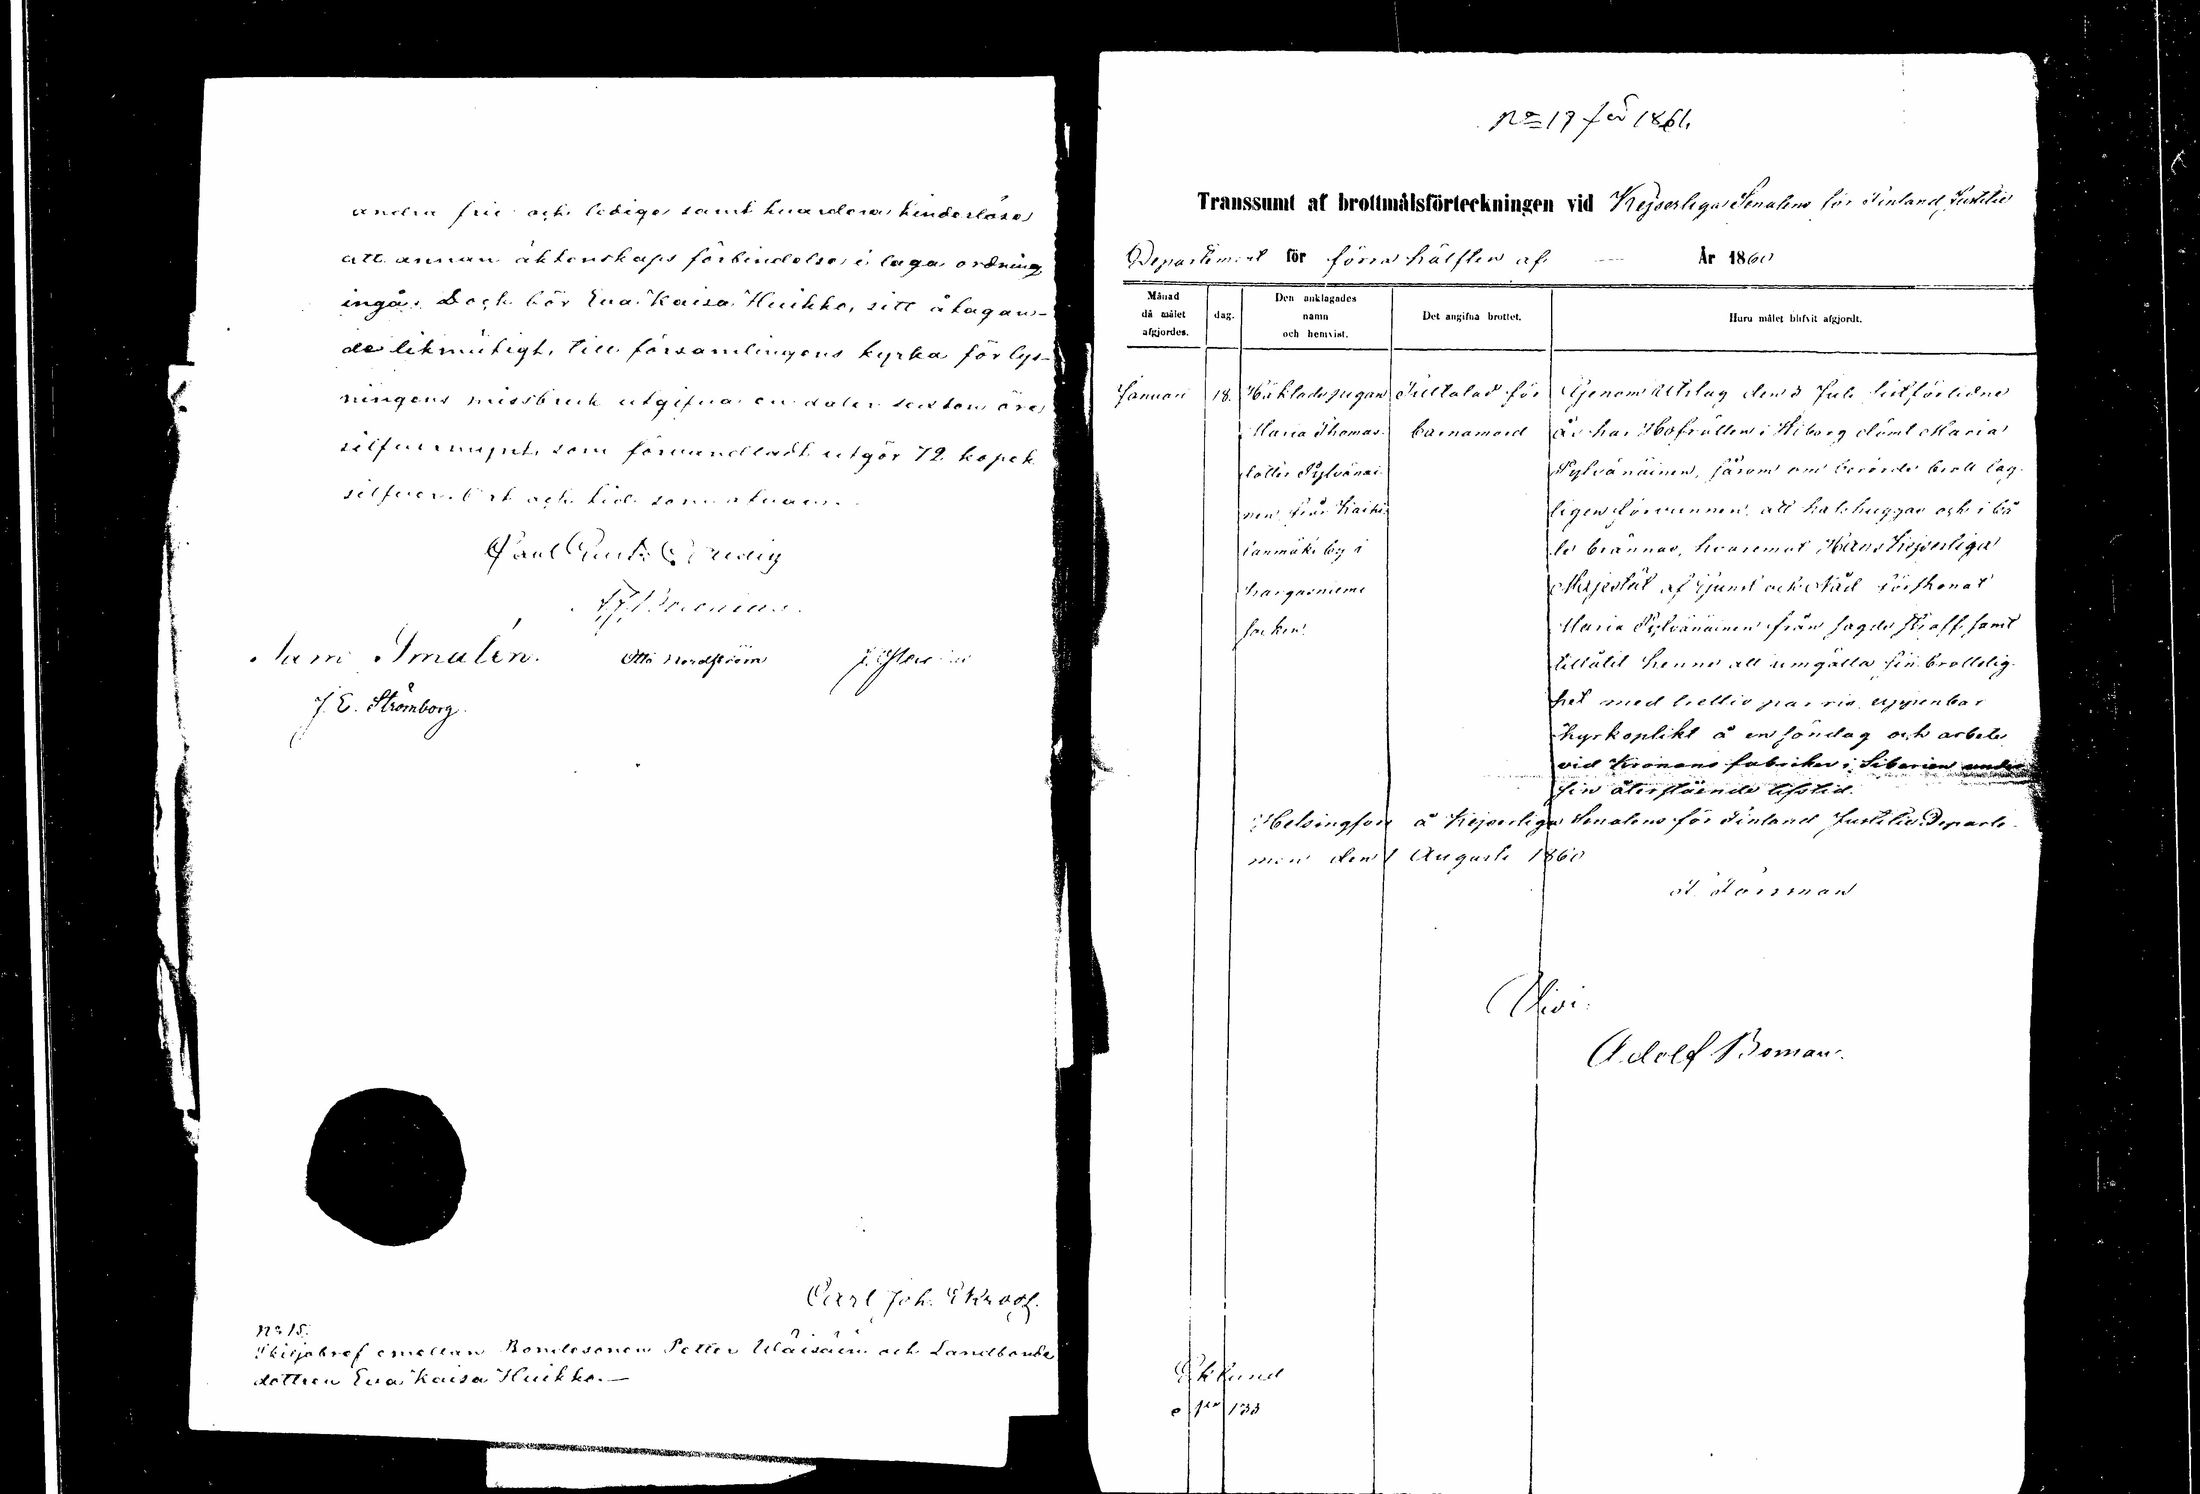 andra frie och ledige samt hvardera hinderlöse
att annan äktenskaps förbindelse i laga ordning
ingå. Dock bör Eva Kaisa Huikko, sitt åtagan-
de likmätigt, till församlingens kyrka för lys-
ningens missbruk utgifva en daler sexton öre
silfvermynt, som förvandladt utgör 72 kopek
silfver. Ort och tid som ofvan.
Paul
F. J. Borenius.
Sam Smalén.
Otto Nordström
J. E. Strömborg.
Carl Joh. Ekroos.
No 15.
Skiljobref emellan Bondesonen Petter Wäisäin och Landbonde
dottren Eva Kaisa Huikko.
No 17 för 1861.
Transsumt af brottmålsförteckningen vid Kejserliga Senatens för Finland Justitie
Departement för förra hälften af — År 1860
Månad då målet afgjordes.
dag.
Den anklagades namn och hemvist.
Det angifna brottet.
Huru målet blifvit afgjordt.
Januari
18.
Häktade pigan
Maria Thomas
dotter Pylvänäi
nen från
by i
Kangasniemi
socken.
Tilltalad för
barnamord
Genom Utslag den 3 Juli sistförlidne
år har Hofrätten i Wiborg dömt Maria
Pylvänäinen, såsom om berörde brott lag-
ligen förvunnen, att halshuggas och i bå
le brännas, hvaremot Hans Kejserliga
Majestät af Gunst och Nåd förskonat
Maria Pylvänäinen från sagde straff samt
tillåtit henne att umgälla sin brottslig-
het med trettio par ris, uppenbar
kyrkoplikt å en söndag och arbete
vid Kronans fabriker i Siberien under
sin återstående lifstid.
Helsingfors å Kejserliga Senatens för Finland Justitie Departe-
men den 1 Augusti 1860
Vivi.
Adolf Boman.
Eklund